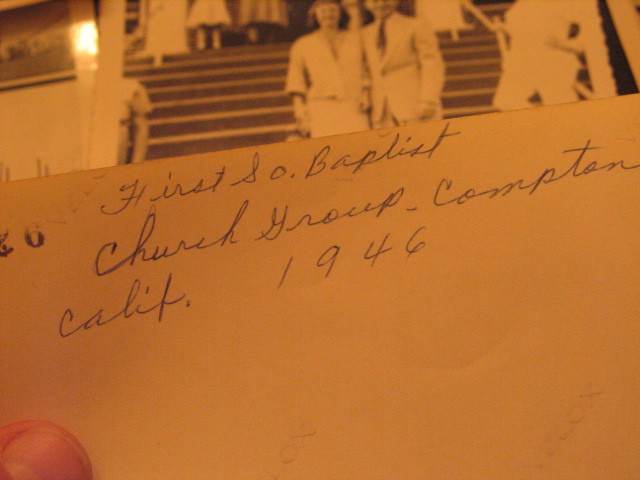 First So. Baptist
Church Group - Compton
Calif. 1946
26
VELOX